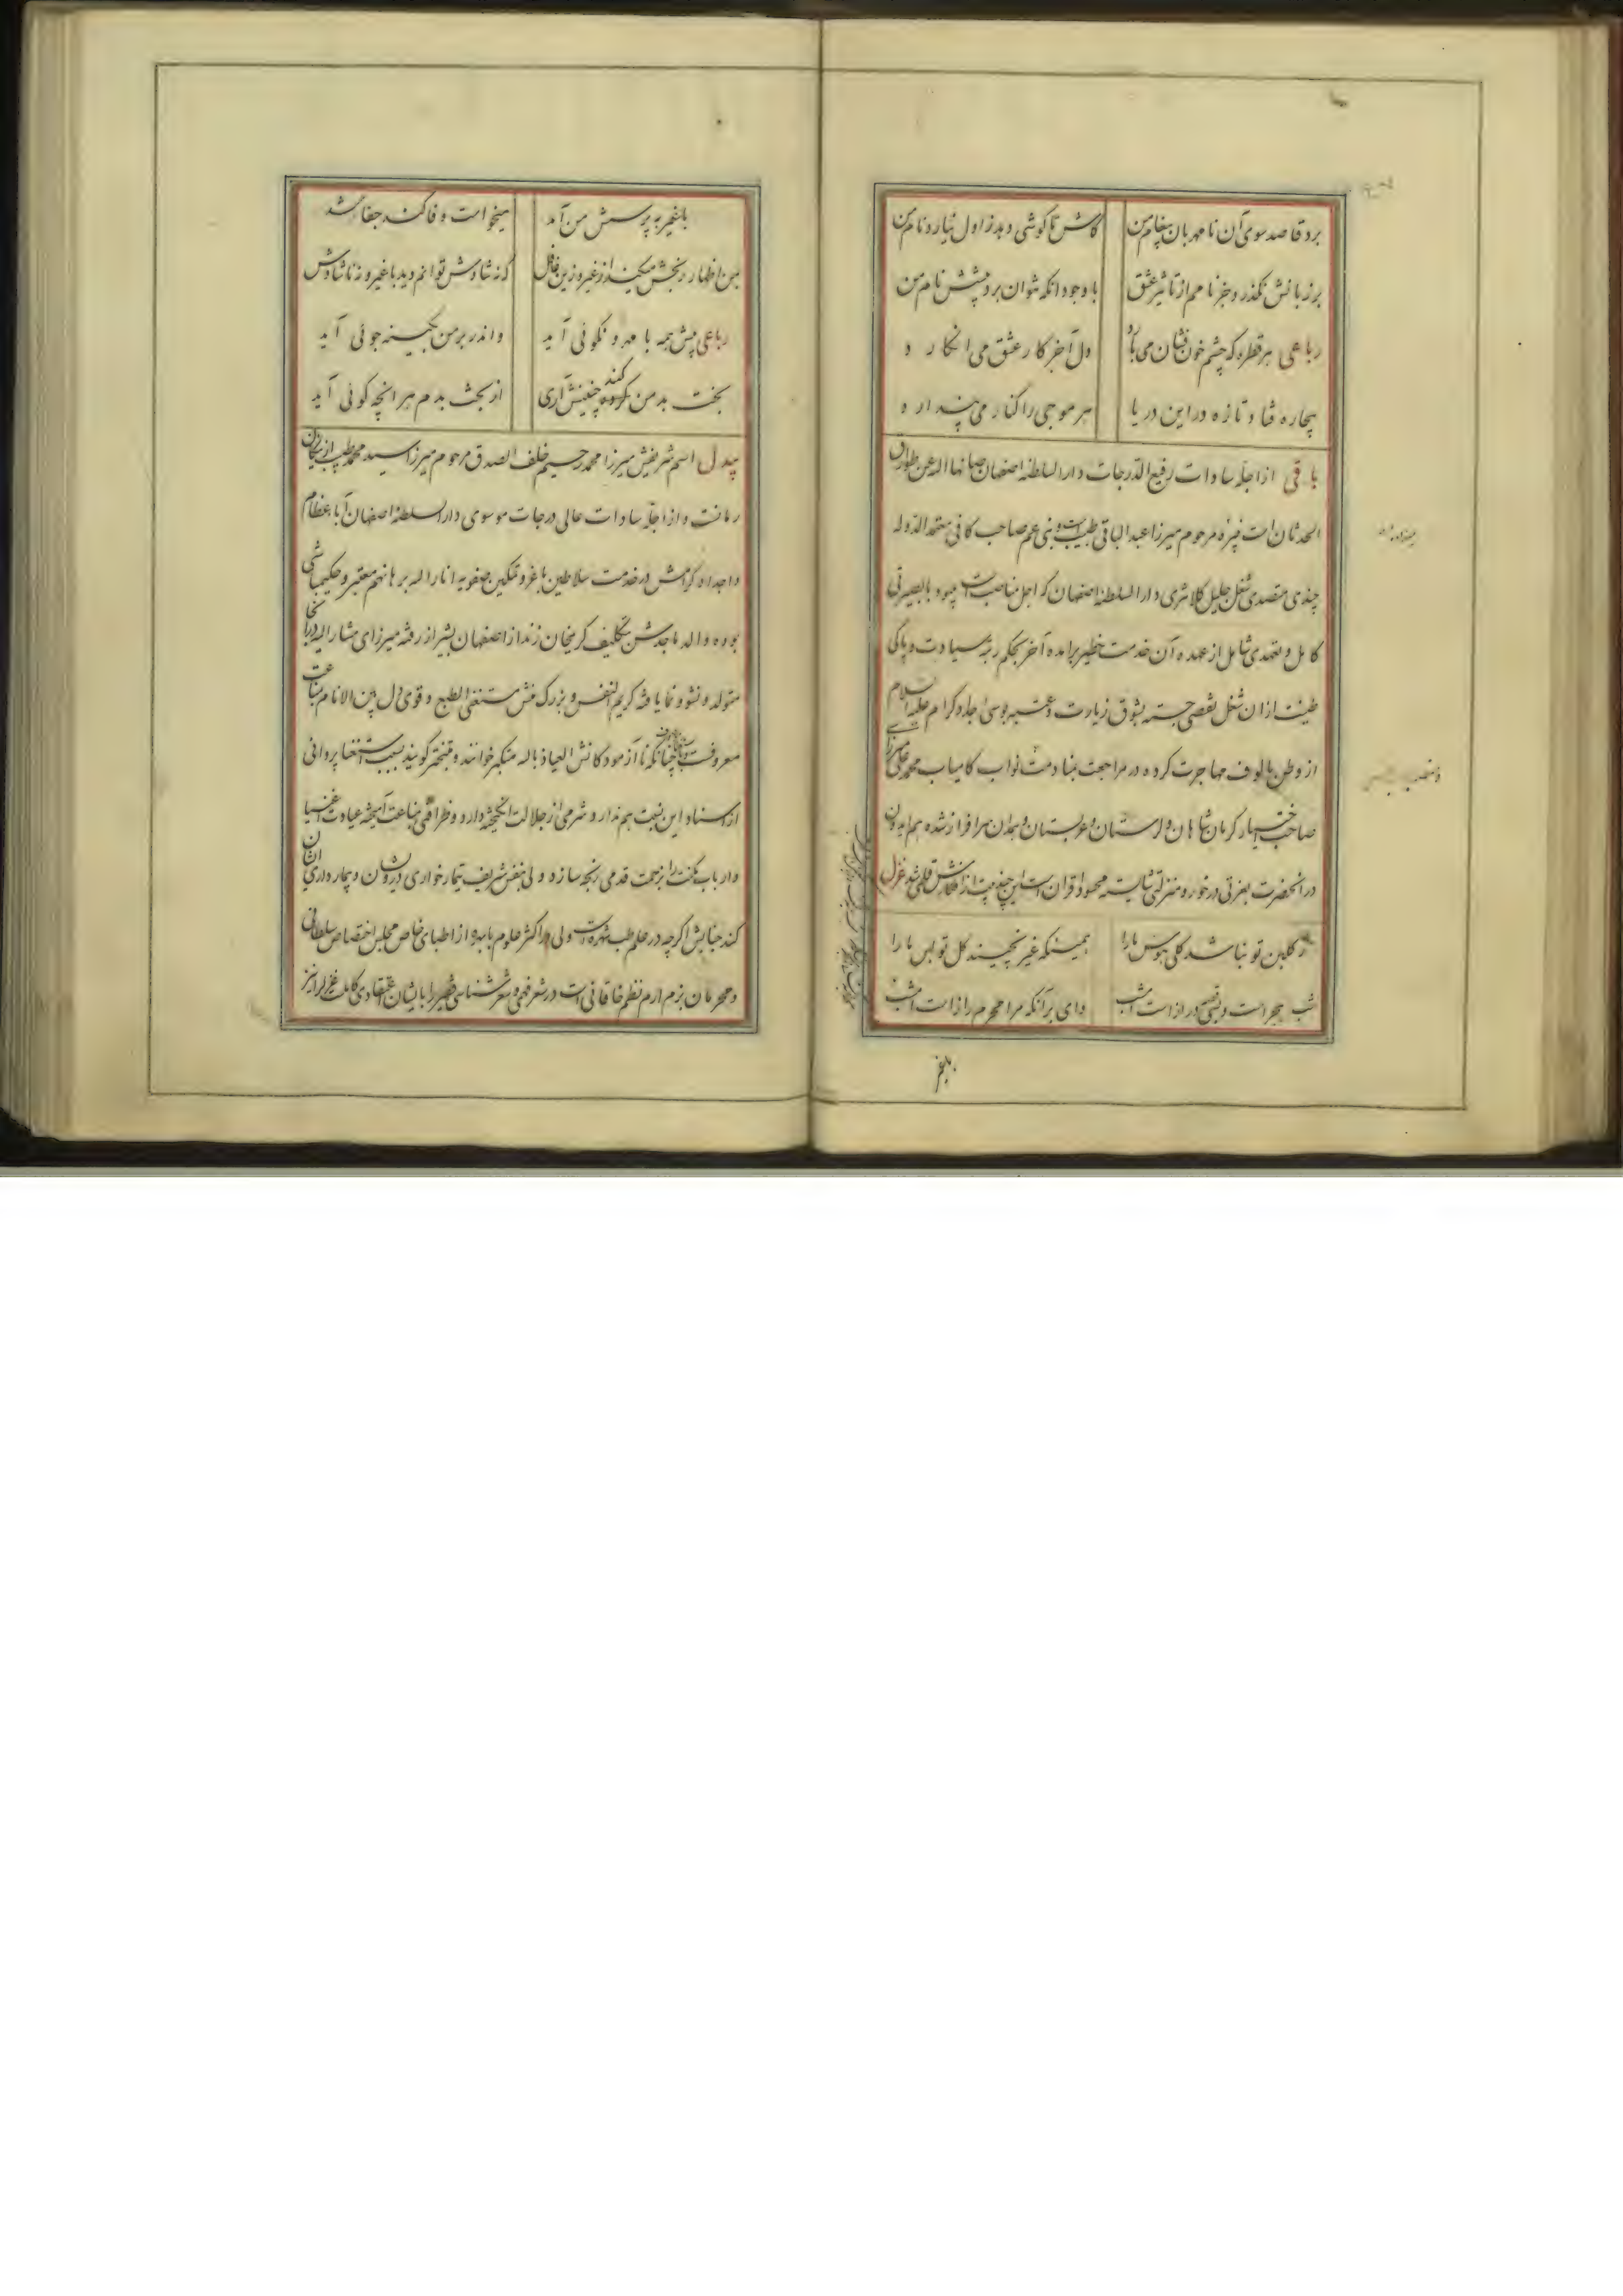 برد قاصد سوی آن نامهربان پیغام من کاش تا گوشی دهد ز اول نیارد نام من
بر زبانش نگذرد جز نامم از تاثیر عشق با وجود آنکه نتوان برد پیشش نام من
رباعی هر قطره که چشم خون‌فشان می بارد دل آخر کار عشق می انکارد
بیچاره فتاده تازه در این دریا هر موجی را کنار می پندارد
باقی از اجلهٔ سادات رفیع الدرجات دارالسلطنه اصفهان صانها الله عن طوارق
الحدثان است نبیرهٔ مرحوم میرزا عبدالباقی طبیب و بنی عم صاحب کافی معتمد الدوله
چندی متصدی شغل جلیل کلانتری دارالسلطنه اصفهان که اجل مناصب است میبود با بصیرتی
کامل و تعهدی شامل از عهده آن خدمت خطیر برآمده آخر بحکم رتبه سیادت و پاکی
طینت از آن شغل تفصی جسته بشوق زیارت و عتبه بوسی اجداد کرام علیهم السلام
از وطن مالوف مهاجرت کرده در مراجعت بمنادمت نواب کامیاب محمد علی میرزا
صاحب اختیار کرمانشاهان و لرستان و عربستان و همدان سرافراز شده هم ایدون
در آنحضرت بعزتی درخور و منزلتی شایسته محسود اقران است این چند بیت از افکارش قلمی شد غزل
ز گلبن تو نباشد گلی هوس ما را همینکه غیر نچیند گل تو بس ما را
شب هجر است و بسی دراز است امشب وای بر آنکه مرا محرم راز است امشب
با غیر
با غیر به پرسش من آمد میخواست وفا کند جفا شد
من اظهار رنجش میکند از غیر و زین غافل که نه شادش توانم دید با غیر و نه ناشادش
رباعی پیش همه با مهر و نکوئی آید و اندر بر من کینه جوئی آید
بخت بد من کند چنینش آری از بخت بدم هر آنچه گوئی آید
بیدل اسم شریفش میرزا محمد رحیم خلف الصدق مرحوم میرزا سید محمد طبیب از نیکان
زمانست و از اجلهٔ سادات عالی درجات موسوی دارالسلطنه اصفهان آبا عظام
و اجداد کرامش در خدمت سلاطین با عز و تمکین صفویه انار الله برهانهم معتبر و حکیمباشی
بوده والد ماجدش بتکلیف کریمخان زند از اصفهان بشیراز رفته میرزای مشارالیه در آنجا
متولد و نشو و نما یافته کریم النفس و بزرگ منش مستغنی الطبع و قوی دل بین الانام بمناعت
معروفست چنانکه ناآزمودگانش العیاذ بالله متکبر خوانند و متبختر گویند بسبب استغنا پروائی
از اسناد این نسبت هم ندارد و شرمی از جلالت انگیخته دارد و ظرافتی بمناعت آمیخته عیادت اغنیا
و ارباب مکنت را بزحمت قدمی رنجه سازد ولی بنفس شریف تیمارخواری درویشان و بیمارداری ایشان
کند جنابش اگر چه در علم طب شهره است ولی از اکثر علوم با بهره از اطبای خاص مجلس اختصاص سلطانی
و محرمان بزم ارم نظم خاقانی است در شعر فهمی و شعر شناسی فقیر را بایشان اعتقادی کاملست غزل را نیز